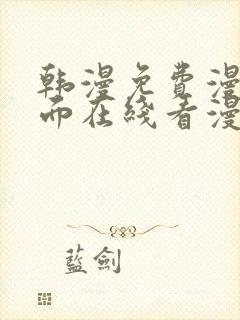 韩漫免费漫
面在线看漫
藍劍